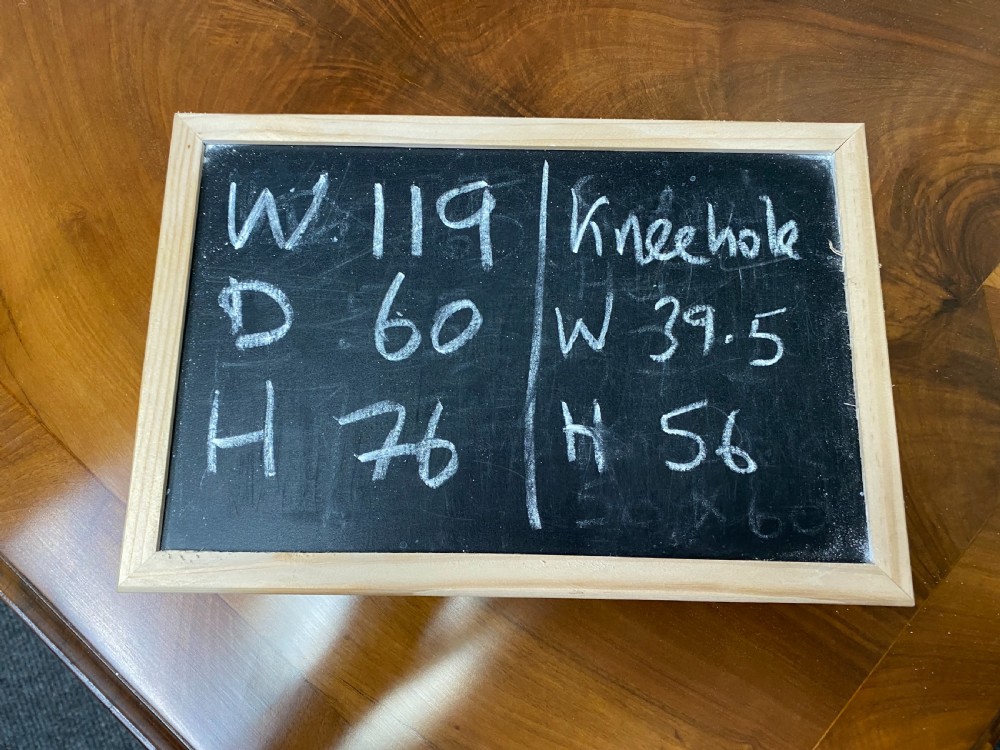 W 119
D 60
H 76
Kneehole
W 39.5
H 56